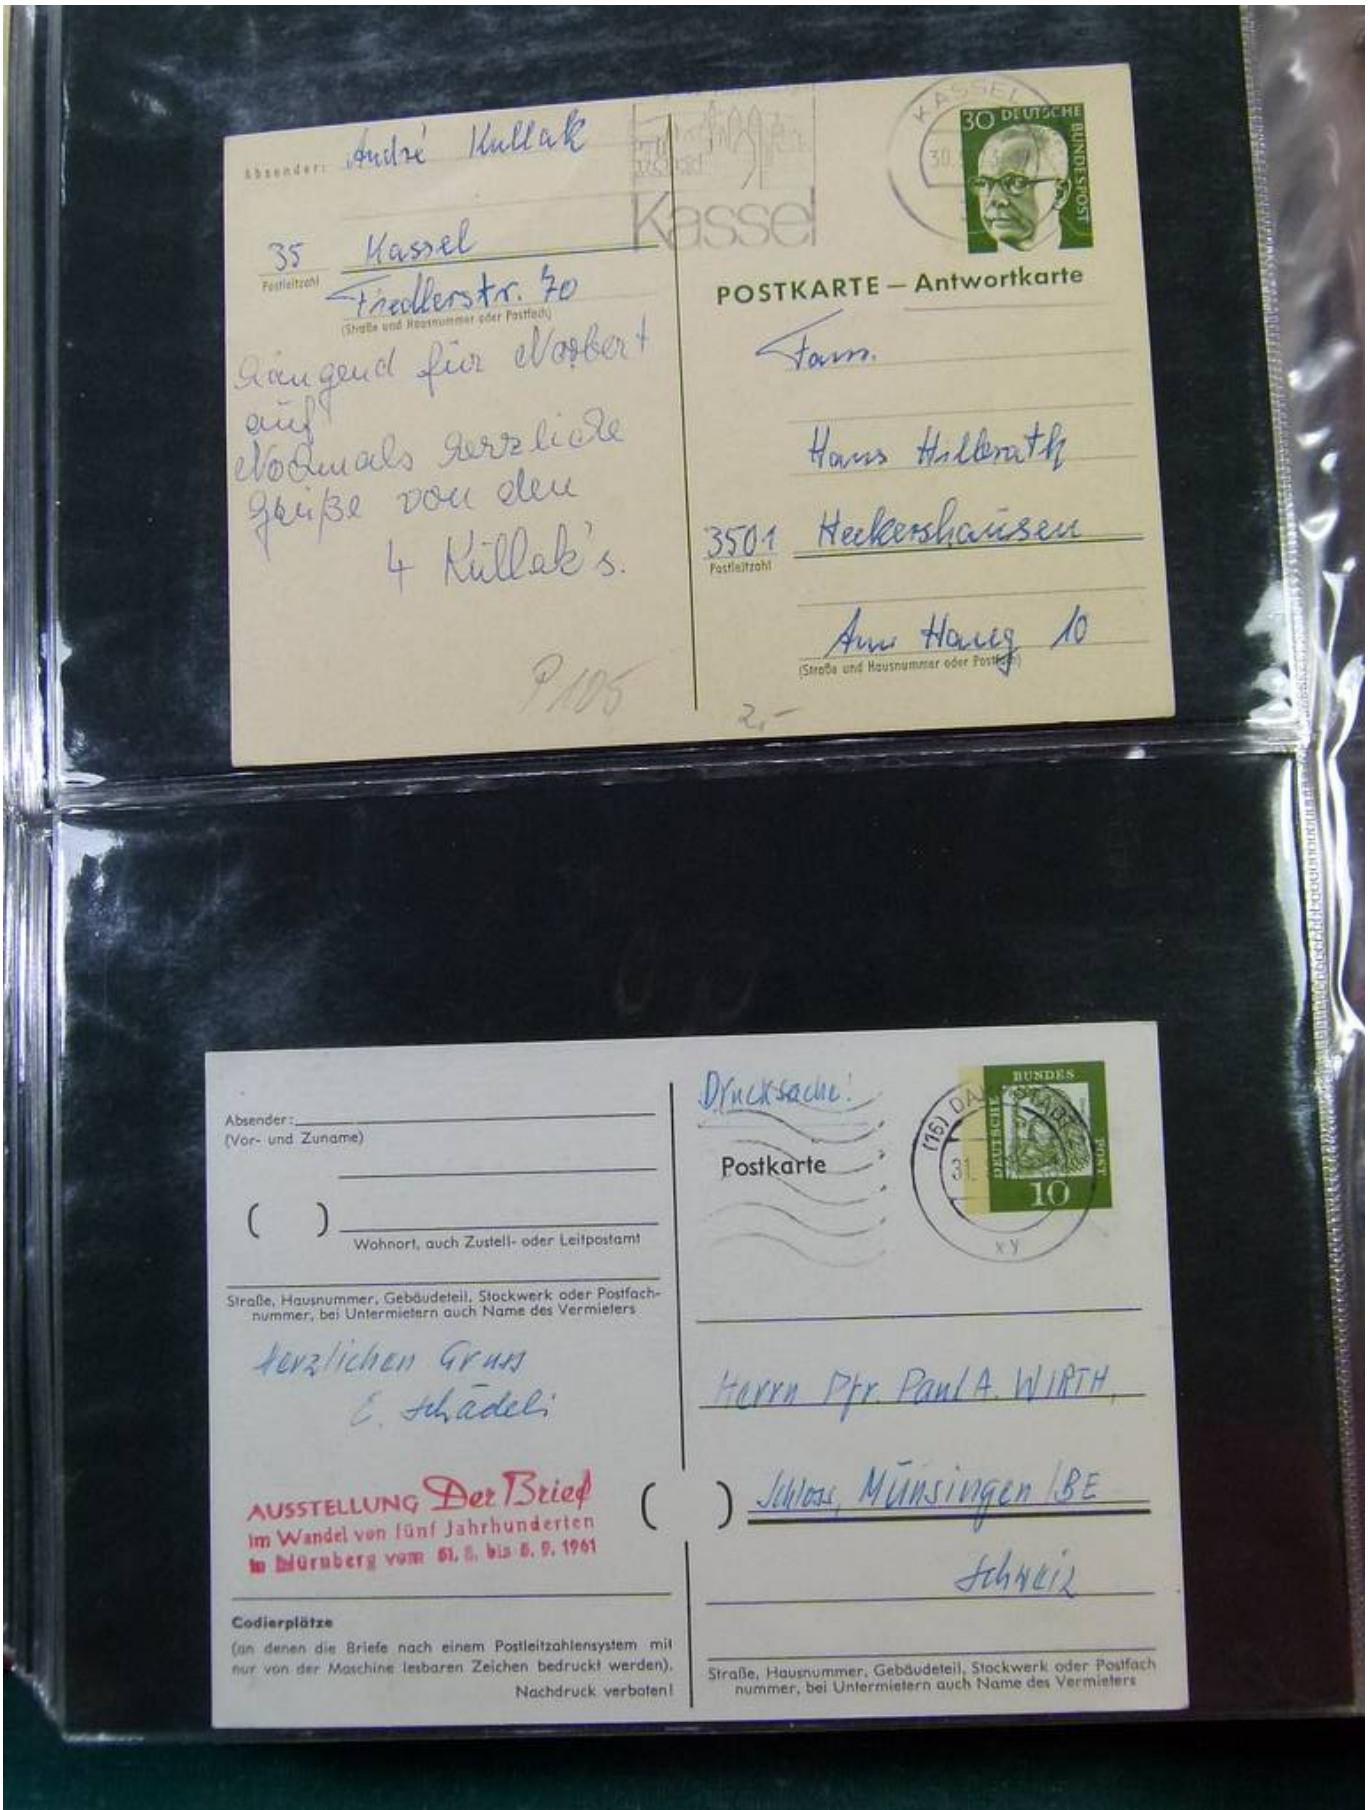 Absender: André Kullak
35 Kassel
Postleitzahl
Friedlerstr. 70
(Straße und Hausnummer oder Postfach)
für Norbert
auf
Nochmals herzliche
Grüße von den
4 Kullak's.
P 105
Kassel
KASSEL
30
30 DEUTSCHE
BUNDESPOST
POSTKARTE – Antwortkarte
Fam.
Hans Hillerath
3501 Heckershausen
Postleitzahl
Am Hang 10
(Straße und Hausnummer oder Postfach)
2,-
Absender:
(Vor- und Zuname)
( )
Wohnort, auch Zustell- oder Leitpostamt
Straße, Hausnummer, Gebäudeteil, Stockwerk oder Postfach-
nummer, bei Untermietern auch Name des Vermieters
Herzlichen Gruss
E. Schädeli
AUSSTELLUNG Der Brief
im Wandel von fünf Jahrhunderten
in Nürnberg vom 31. 8. bis 5. 9. 1961
Codierplätze
(an denen die Briefe nach einem Postleitzahlensystem mit
nur von der Maschine lesbaren Zeichen bedruckt werden).
Nachdruck verboten!
Drucksache!
Postkarte
(16) DARMSTADT
31.
xy
DEUTSCHE BUNDES POST
10
Herrn Pfr. Paul A. WIRTH,
( ) Schloss, Münsingen / BE
Schweiz
Straße, Hausnummer, Gebäudeteil, Stockwerk oder Postfach
nummer, bei Untermietern auch Name des Vermieters